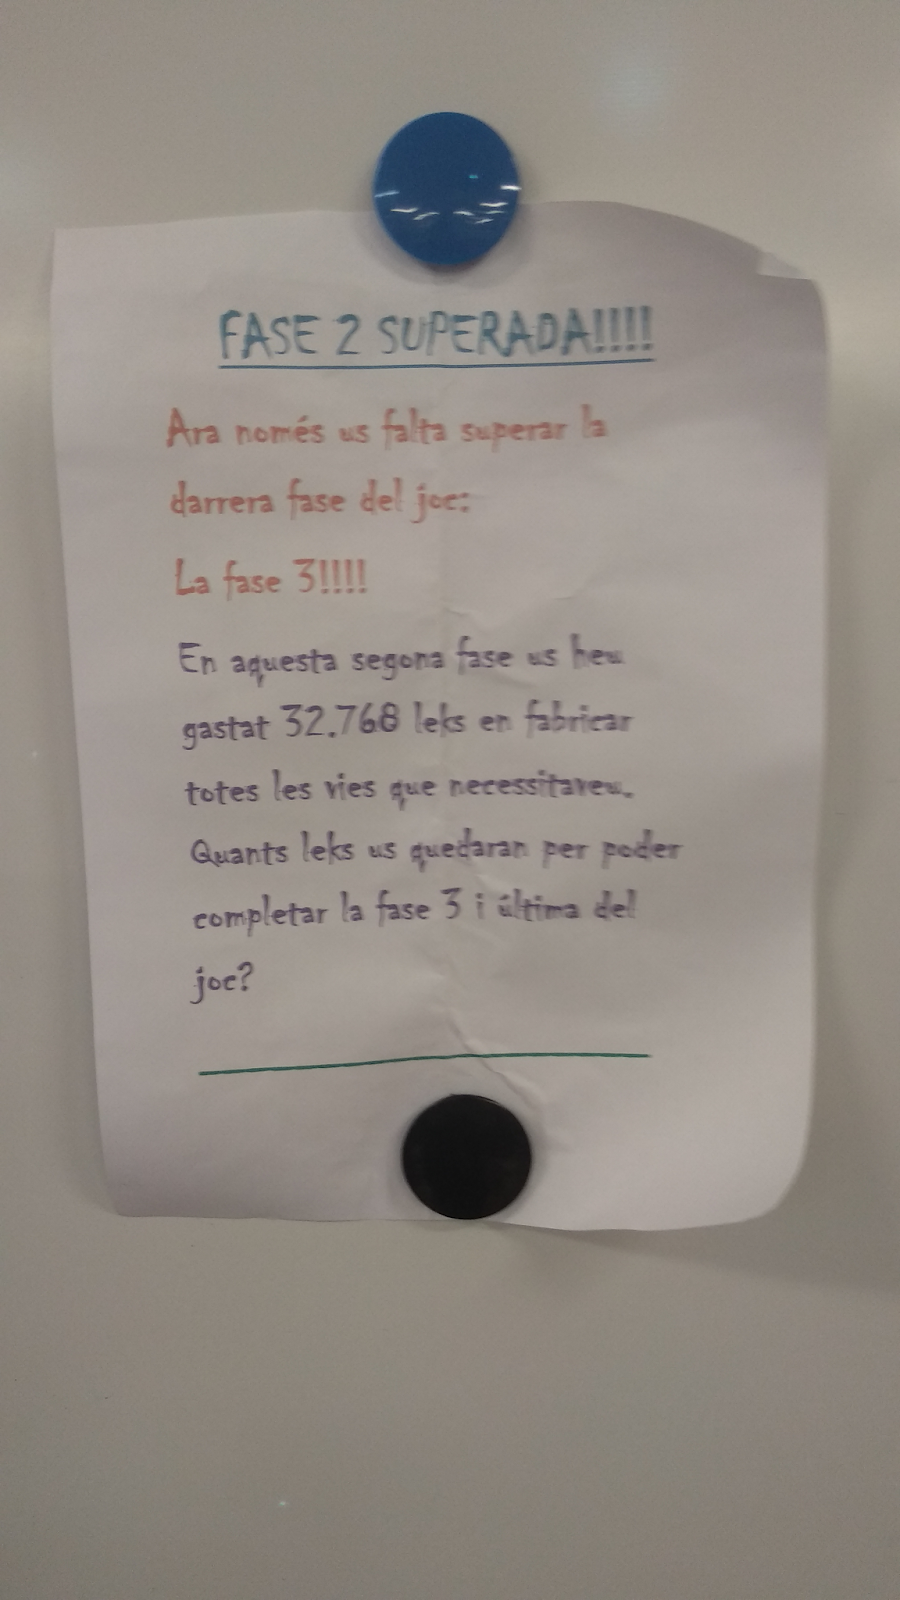 FASE 2 SUPERADA!!!!
Ara només us falta superar la
darrera fase del joc:
La fase 3!!!!
En aquesta segona fase us heu
gastat 32.768 leks en fabricar
totes les vies que necessitaveu.
Quants leks us quedaran per poder
completar la fase 3 i última del
joc?